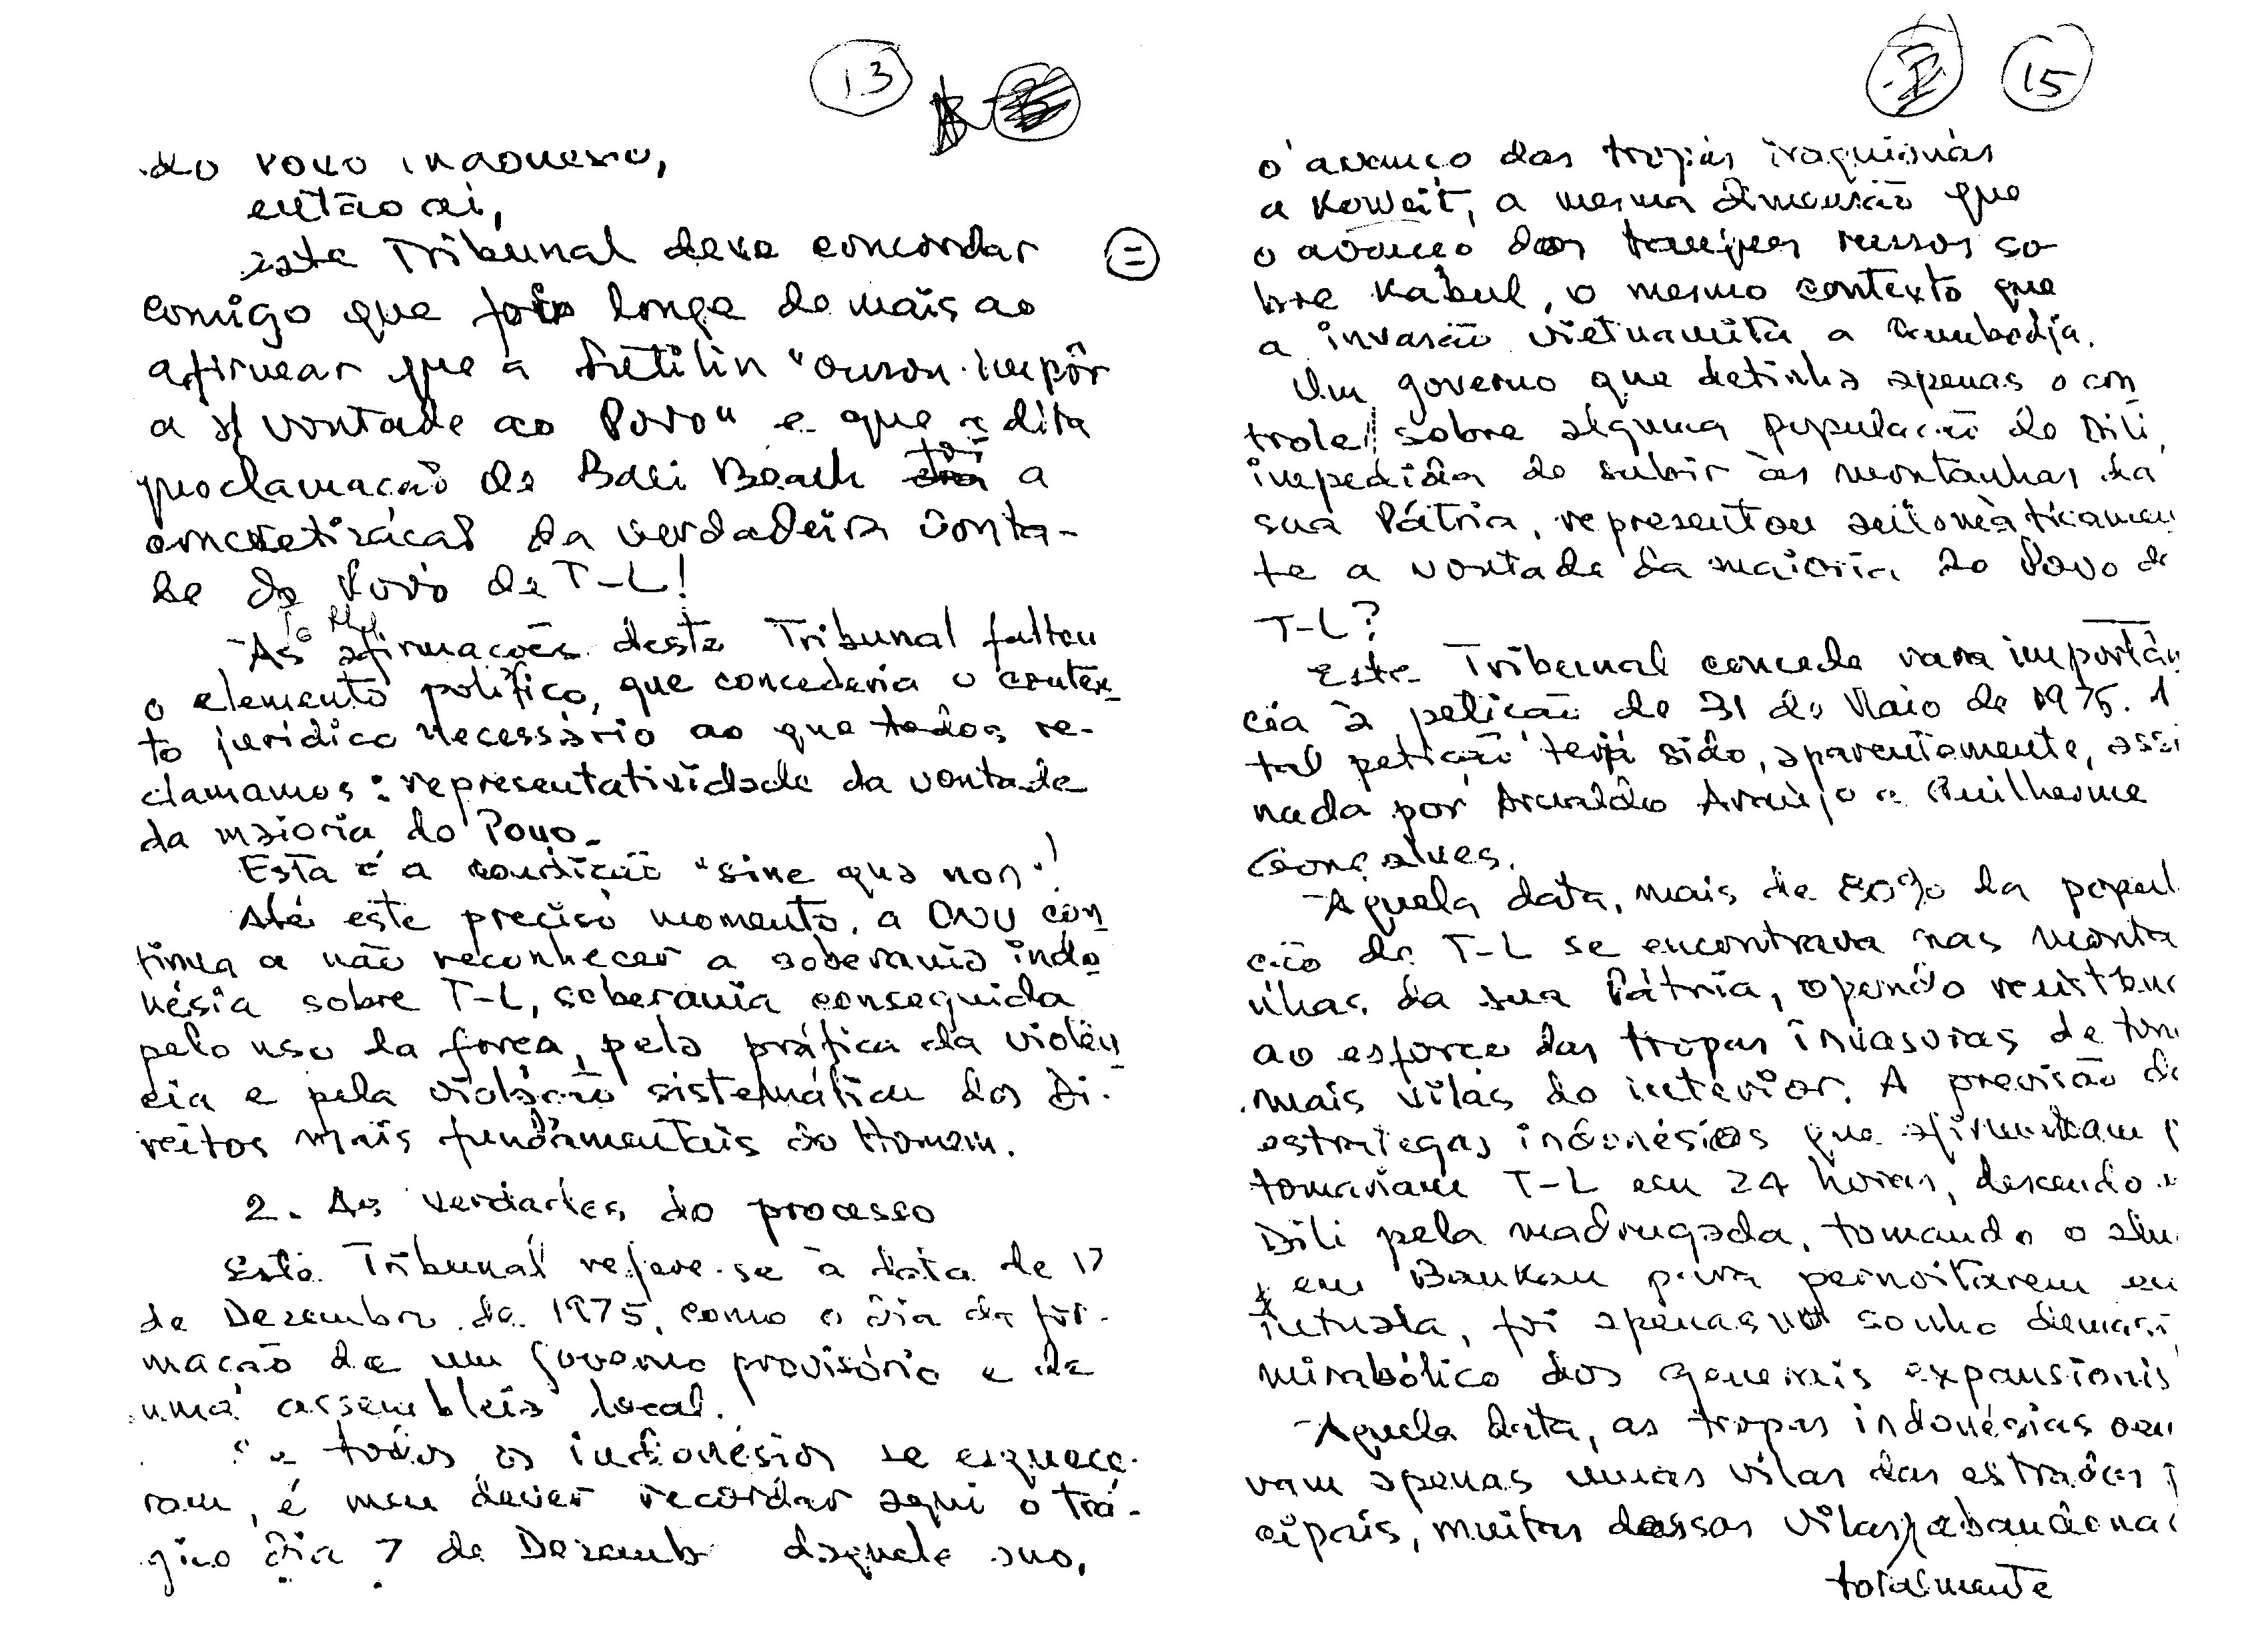 13
do Povo indonésio,
então aí,
este Tribunal deve concordar
comigo que foi longe demais ao
afirmar que a Fretilin "ousou impôr
a s/ vontade ao Povo" e que a dita
proclamação de Bali Beach foi a
concretização da verdadeira vonta-
de do Povo de T-L!
Às afirmações deste Tribunal faltou
o elemento político, que concederia o contex-
to jurídico necessário ao que todos re-
clamamos: representatividade da vontade
da maioria do Povo.
Esta é a condição "sine qua non"!
Até este preciso momento, a ONU con-
tinua a não reconhecer a soberania indo-
nésia sobre T-L, soberania conseguida
pelo uso da força, pela prática da violên-
cia e pela violação sistemática dos Di-
reitos mais fundamentais do Homem.
2. As verdades do processo
Este Tribunal refere-se à data de 17
de Dezembro de 1975, como o dia da for-
mação de um governo provisório e de
uma assembleia local.
todos os indonésios se esquece-
ram, é meu dever recordar aqui o trá-
gico dia 7 de Dezemb daquele ano,
15
o avanço das tropas iraquianas
a Koweit, a mesma dimensão que
o avanço dos tanques russos so-
bre Kabul, o mesmo contexto que
a invasão vietnamita a Cambodja.
Um governo que detinha apenas o con-
trole sobre alguma população de Dili,
impedida de subir às montanhas da
sua Pátria, representou automàticamen
te a vontade da maioria do Povo de
T-L?
Este Tribunal concede rara importân
cia à petição de 31 de Maio de 1975. 
tal petição terá sido, aparentemente, assi
nada por Arnaldo Araújo e Guilherme
Gonçalves.
Àquela data, mais de 80% da popul
ção de T-L se encontrava nas monta
nhas da sua Pátria, opondo resistênc
ao esforço das tropas invasoras de tom
mais vilas do interior. A previsão do
estrategas indonésios que afirmavam
tomariam T-L em 24 horas, descendo
Dili pela madrugada, tomando o alm
em Baukau para pernoitarem em
Tutuala, foi apenas um sonho demasi
mirabólico dos generais expansionis
Àquela data, as tropas indonésias ocu
vam apenas umas vilas das estradas
cipais, muitas dessas vilas, abandonad
totalmente